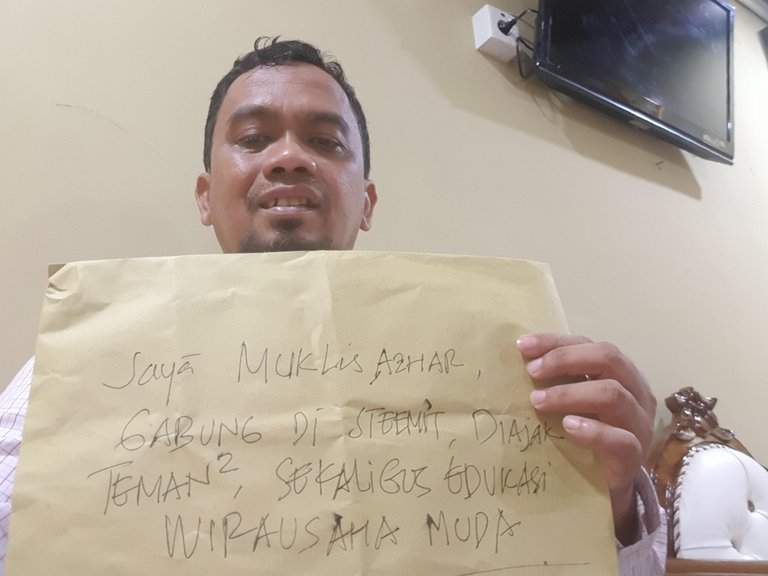 Saya MUKLis AZHAR,
GABUNG Di STEEMiT, DiAJAK
TEMAN², SEKALiGUS EDUKASi
WIRAUSAHA MUDA